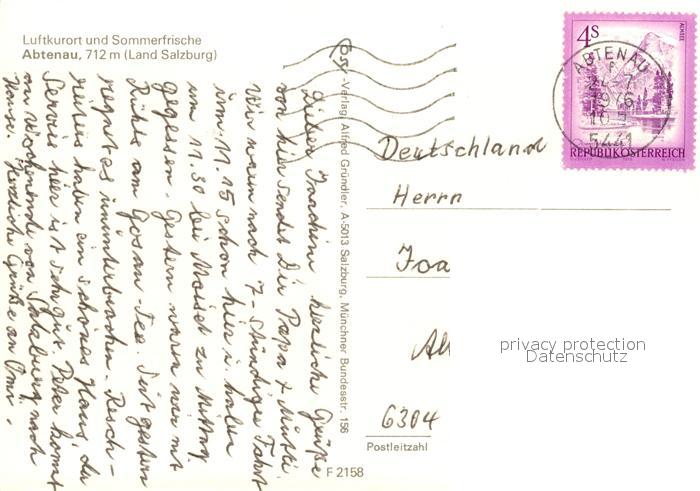 Luftkurort und Sommerfrische
Abtenau, 712 m (Land Salzburg)
Lieber Joachim! herzliche Grüße
von hier sendet Dir Papa + Mutti.
Wir waren nach 7-stündiger Fahrt
um 11.15 schon hier u. haben
um 11.30 bei Moisel zu Mittag
gegessen. Gestern waren wir mit
Rühls am Gosau-See. Seit gestern
regnet es ununterbrochen.
haben ein schönes Haus, der
Service hier ist sehr gut. Peter kommt
am Wochenende von Salzburg nach
Hause. Herzliche Grüße an Omi.
Verlag Alfred Gründler, A-5013 Salzburg, Münchner Bundesstr. 156
F 2158
4 S
ALMSEE
REPUBLIK ÖSTERREICH
ABTENAU
1976
5441
Deutschland
Herrn
Joa
6304
Postleitzahl
privacy protection
Datenschutz